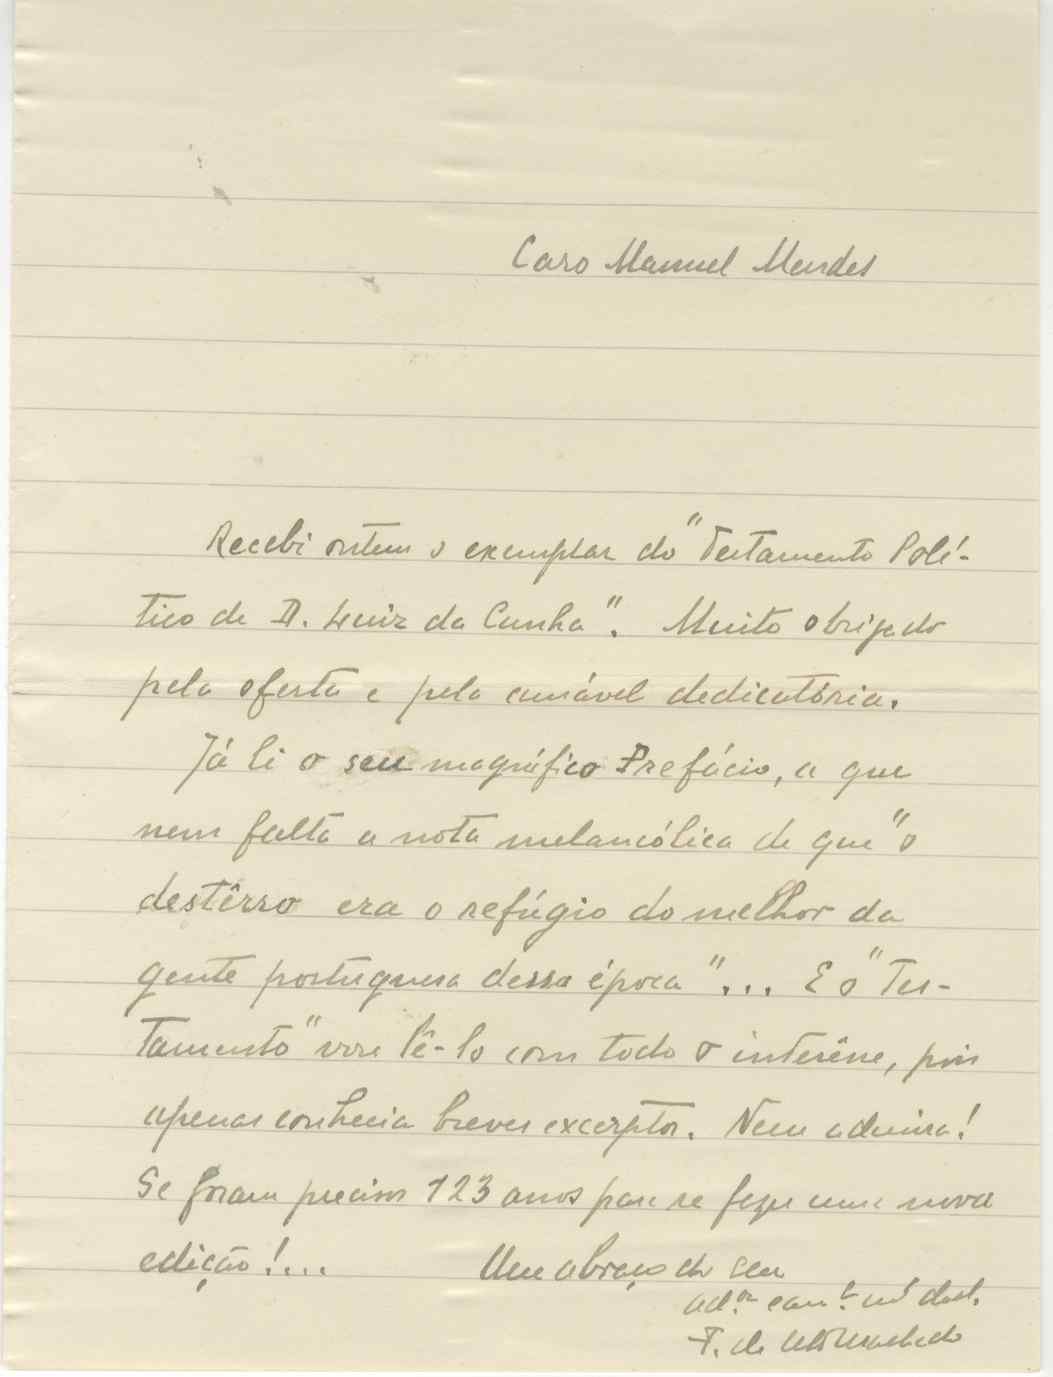 Caro Manuel Mendes
Recebi ontem o exemplar do "Testamento Polí-
tico de D. Luiz da Cunha". Muito obrigado
pela oferta e pela amável dedicatória.
Já li o seu magnífico Prefácio, a que
nem falta a nota melancólica de que "o
destêrro era o refúgio do melhor da
gente portuguesa dessa época"... E o "Tes-
tamento" vou lê-lo com todo o interêsse, pois
apenas conhecia breves excerptos. Nem admira!
Se foram precisos 123 anos para se fazer uma nova
edição!...
Um abraço do seu
ad.or cam.a